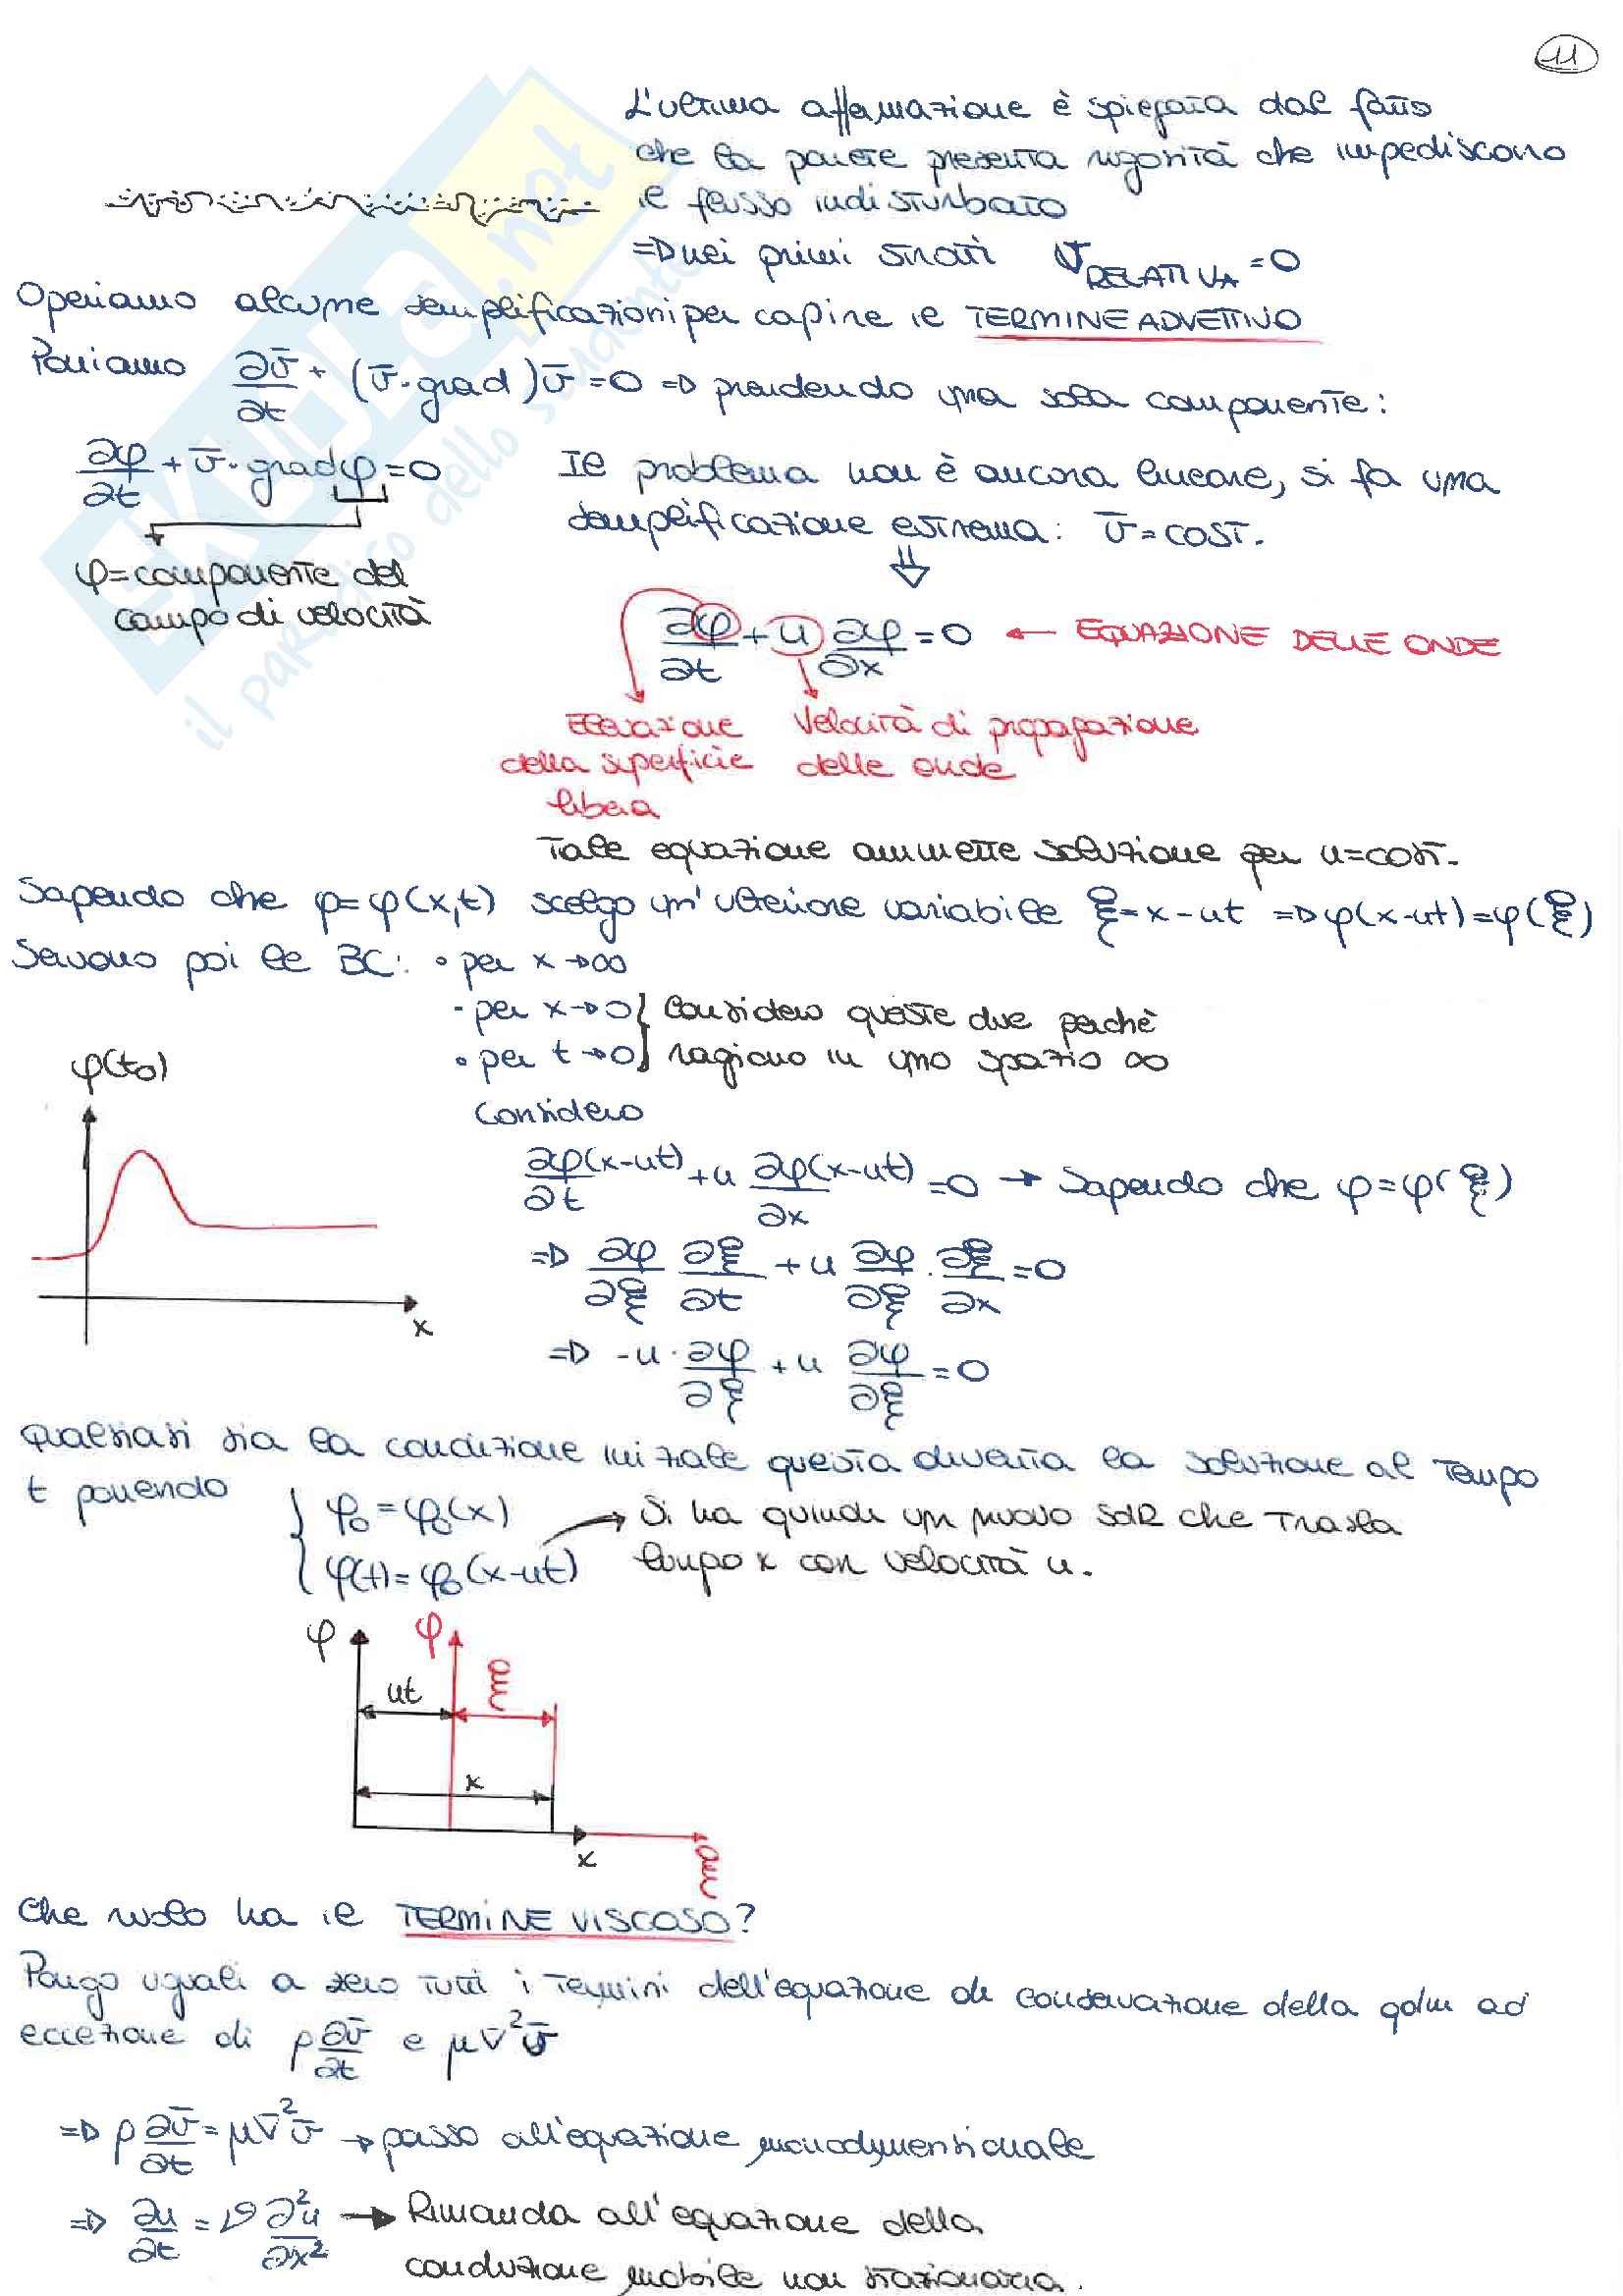 11
L'ultima affermazione è spiegata dal fatto
che la parete presenta rugosità che impediscono
il flusso indisturbato
=> nei primi strati v RELATIVA = 0
Operiamo alcune semplificazioni per capire il TERMINE ADVETTIVO
Poniamo ∂v̄/∂t + (v̄·grad)v̄ = 0 => prendendo una sola componente:
∂φ/∂t + v̄·grad φ = 0
Il problema non è ancora lineare, si fa una
semplificazione estrema: v̄ = COST.
φ = componente del
campo di velocità
⇓
∂φ/∂t + u ∂φ/∂x = 0 ← EQUAZIONE DELLE ONDE
Elevazione
della superficie
libera
Velocità di propagazione
delle onde
Tale equazione ammette soluzione per u=cost.
Sapendo che φ=φ(x,t) scelgo un'ulteriore variabile ξ=x-ut => φ(x-ut)=φ(ξ)
Servono poi le BC: • per x→∞
- per x→0 } Considero queste due perchè
• per t→0 } ragiono in uno spazio ∞
φ(t₀)
x
Considero
∂φ(x-ut)/∂t + u ∂φ(x-ut)/∂x = 0 → Sapendo che φ=φ(ξ)
=> ∂φ/∂ξ ∂ξ/∂t + u ∂φ/∂ξ · ∂ξ/∂x = 0
=> -u · ∂φ/∂ξ + u ∂φ/∂ξ = 0
Qualsiasi sia la condizione iniziale questa diventa la soluzione al tempo
t ponendo
{ φ₀ = φ₀(x)
{ φ(t) = φ₀(x-ut)
→ Si ha quindi un nuovo SdR che trasla
lungo x con velocità u.
φ φ
ut ξ
x
x ξ
Che ruolo ha il TERMINE VISCOSO?
Pongo uguali a zero tutti i termini dell'equazione di conservazione della qdm ad
eccezione di ρ ∂v̄/∂t e μ∇²v̄
=> ρ ∂v̄/∂t = μ∇²v̄ → passo all'equazione monodymensionale
=> ∂u/∂t = ν ∂²u/∂x² → Rimanda all'equazione della
conduzione mobile non stazionaria.
SKUOLA.not
il paradiso dello studente